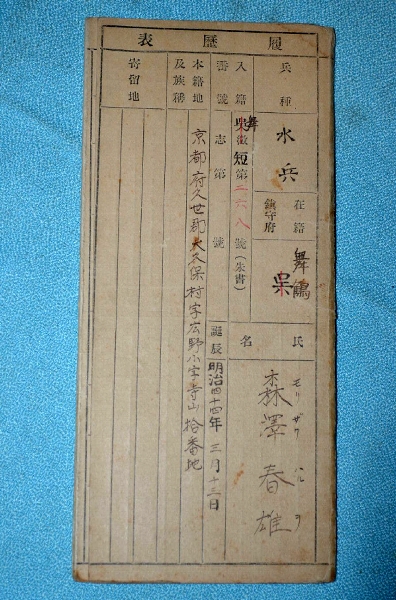 履歴表
兵種
水兵
在籍鎮守府
舞鶴
呉
氏名
モリ ザワ ハル ヲ
森澤春雄
入籍番號
舞
呉徴短第二六八號(朱書)
志第 號
誕辰
明治四十四年三月十三日
本籍地及族稱
京都府久世郡大久保村字広野小字寺山拾番地
寄留地